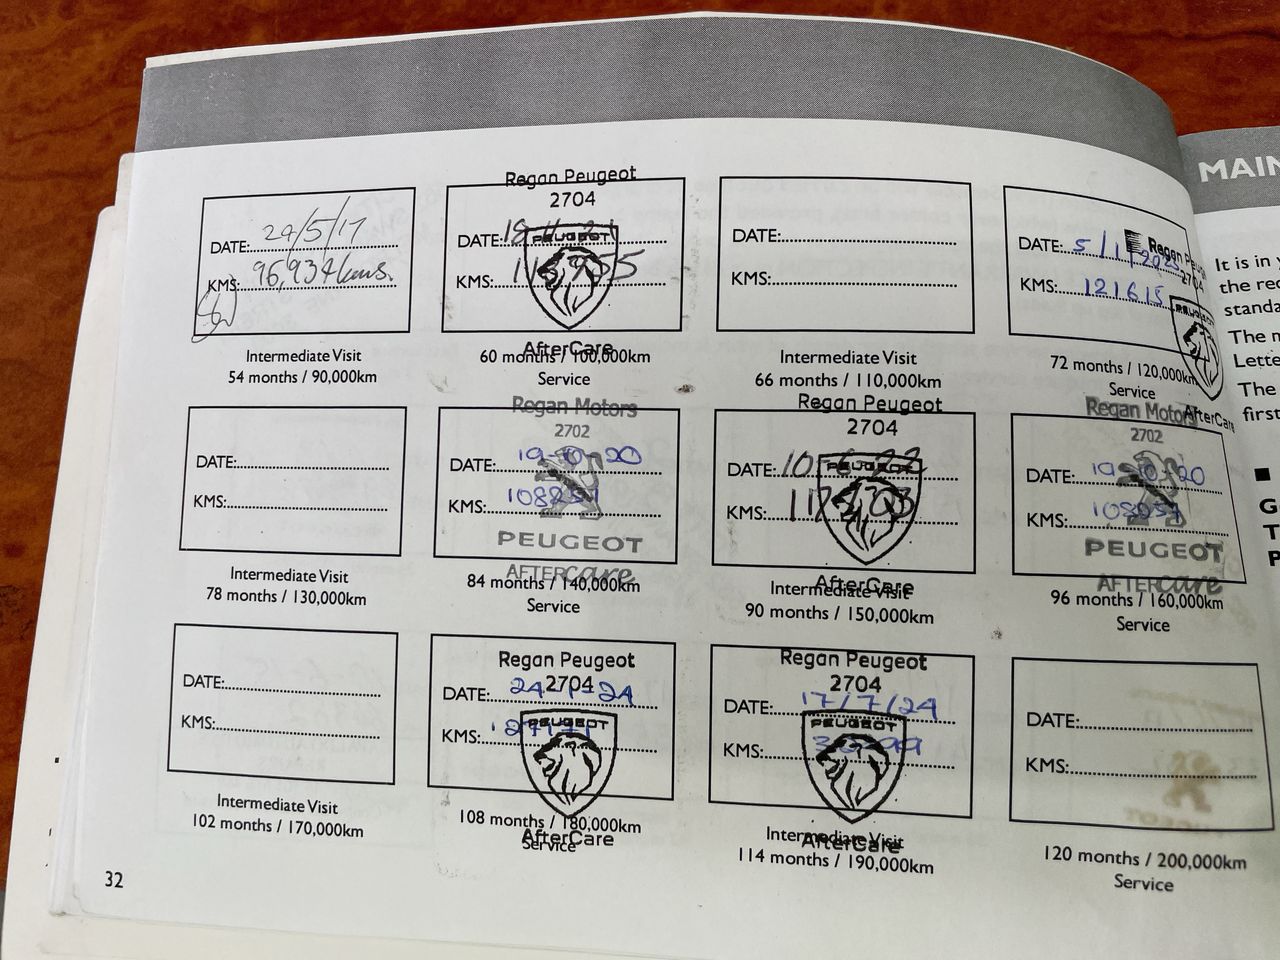 MAIN
DATE: 24/5/17
KMS: 96,934kms.
Intermediate Visit
54 months / 90,000km
Regan Peugeot
2704
DATE:
PEUGEOT
KMS:
AfterCare
60 months / 100,000km
Service
DATE:
KMS:
Intermediate Visit
66 months / 110,000km
DATE: 5/1/2023
Regan Peu
2704
KMS: 121615
PEUGEOT
AfterCare
72 months / 120,000km
Service
DATE:
KMS:
Intermediate Visit
78 months / 130,000km
Regan Motors
2702
DATE: 19-10-20
KMS:
PEUGEOT
AFTERcare
84 months / 140,000km
Service
Regan Peugeot
2704
DATE: 10-6-22
PEUGEOT
KMS:
AfterCare
Intermediate Visit
90 months / 150,000km
Regan Motors
2702
DATE: 19-10-20
KMS:
PEUGEOT
AFTERcare
96 months / 160,000km
Service
DATE:
KMS:
Intermediate Visit
102 months / 170,000km
Regan Peugeot
2704
DATE: 24-1-24
PEUGEOT
KMS:
AfterCare
108 months / 180,000km
Service
Regan Peugeot
2704
DATE: 17/7/24
PEUGEOT
KMS:
AfterCare
Intermediate Visit
114 months / 190,000km
DATE:
KMS:
120 months / 200,000km
Service
32
It is in
the
standa
The
Lette
The
first